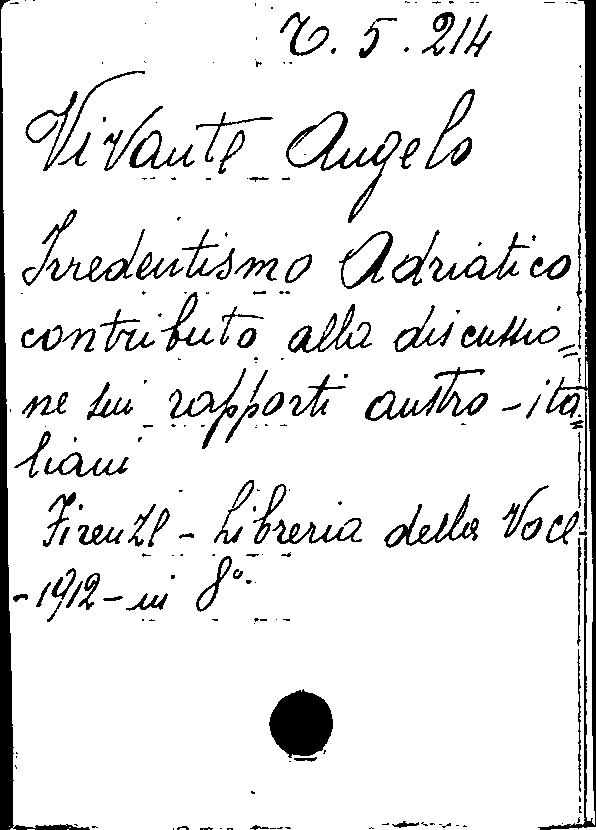 T. 5. 214
Vivante Angelo
Irredentismo Adriatico
contributo alla discussio=
ne sui rapporti austro-ita=
liani
Firenze - Libreria della Voce
-1912- in 8°.